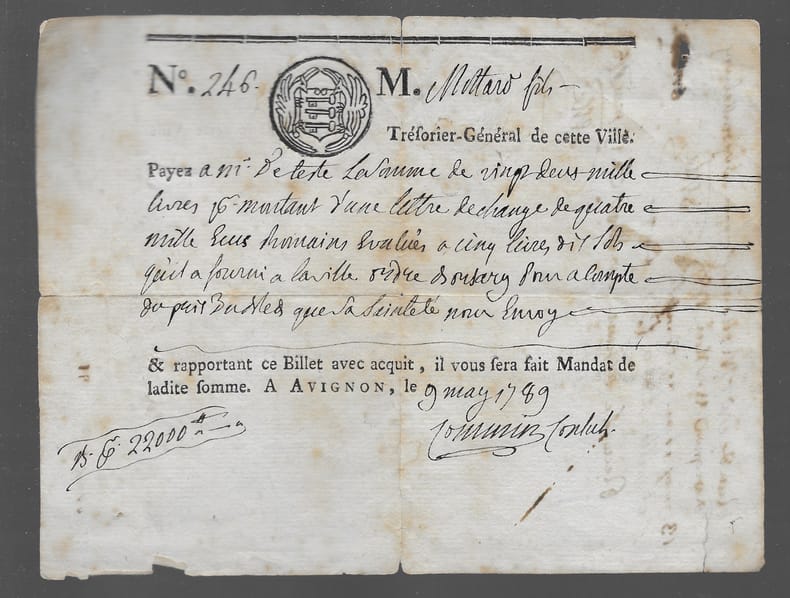 N°. 246.
M. Mottard fils
Tréſorier-Général de cette Ville.
Payez a mr. Deteste La Somme de vingt deux mille
livres pr. montant d'une lettre de change de quatre
mille Ecus Romains Evalués a cinq livres dix sols
qu'il a fourni a la ville ordre Pour a Compte
du prix Bleds que Sa Sainteté nous Envoy
& rapportant ce Billet avec acquit, il vous ſera fait Mandat de
ladite ſomme. A AVIGNON, le 9 may 1789
Consul.
22000 tt